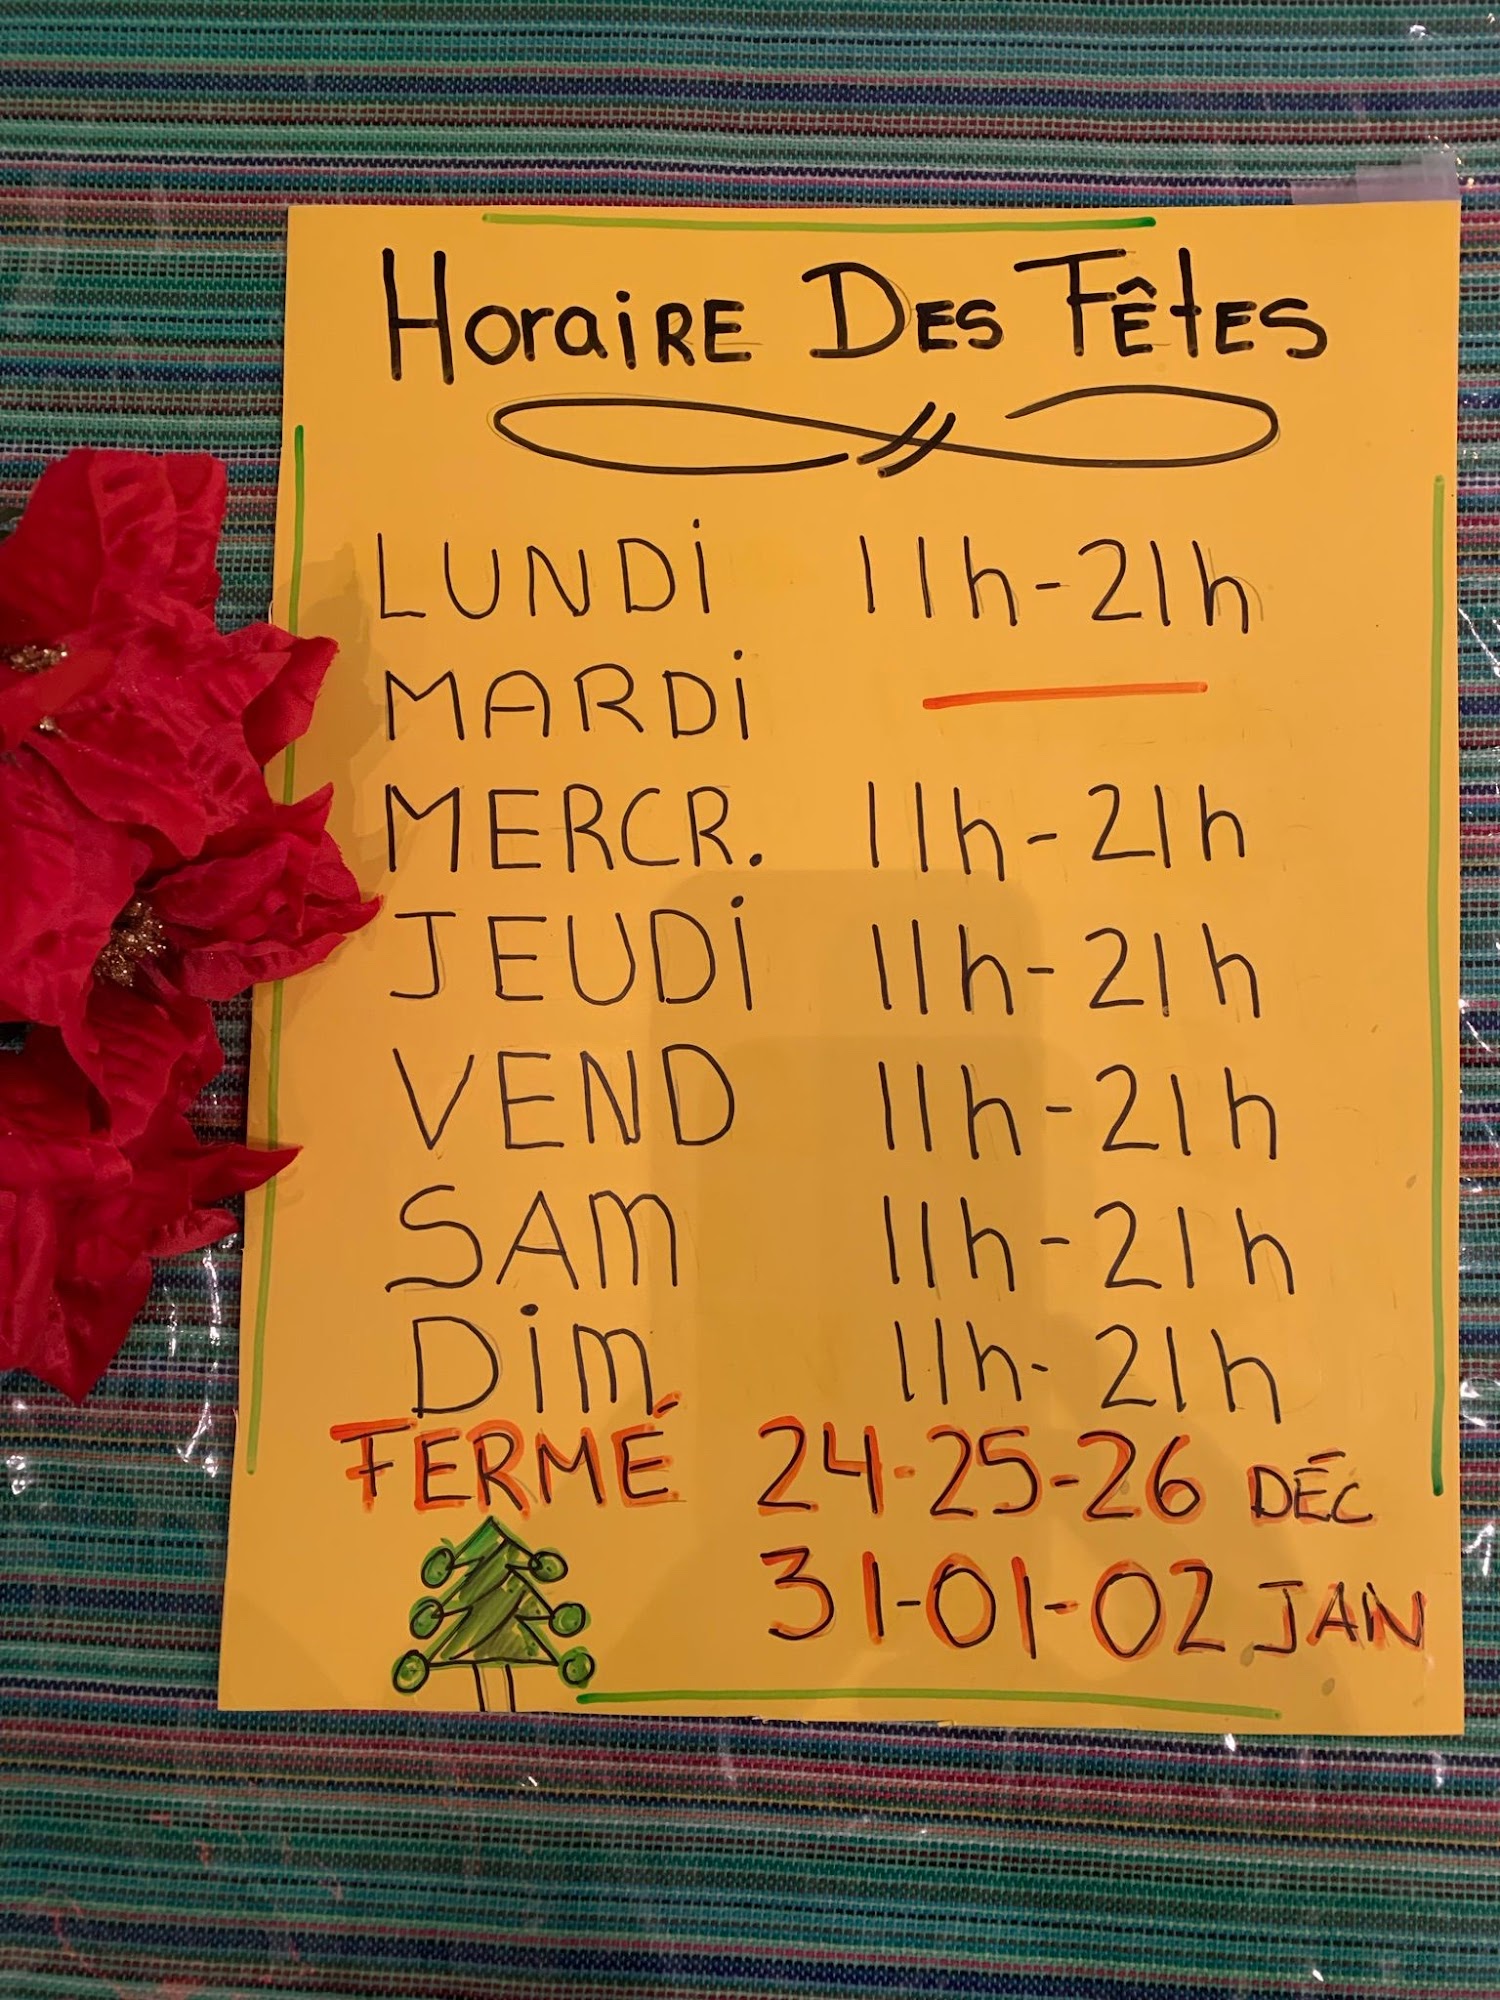 Horaire Des Fêtes
LUNDi 11h-21h
MARDi —
MERCR. 11h-21h
JEUDi 11h-21h
VEND 11h-21h
SAM 11h-21h
Dim 11h-21h
FERMÉ 24-25-26 DÉC
31-01-02 JAN